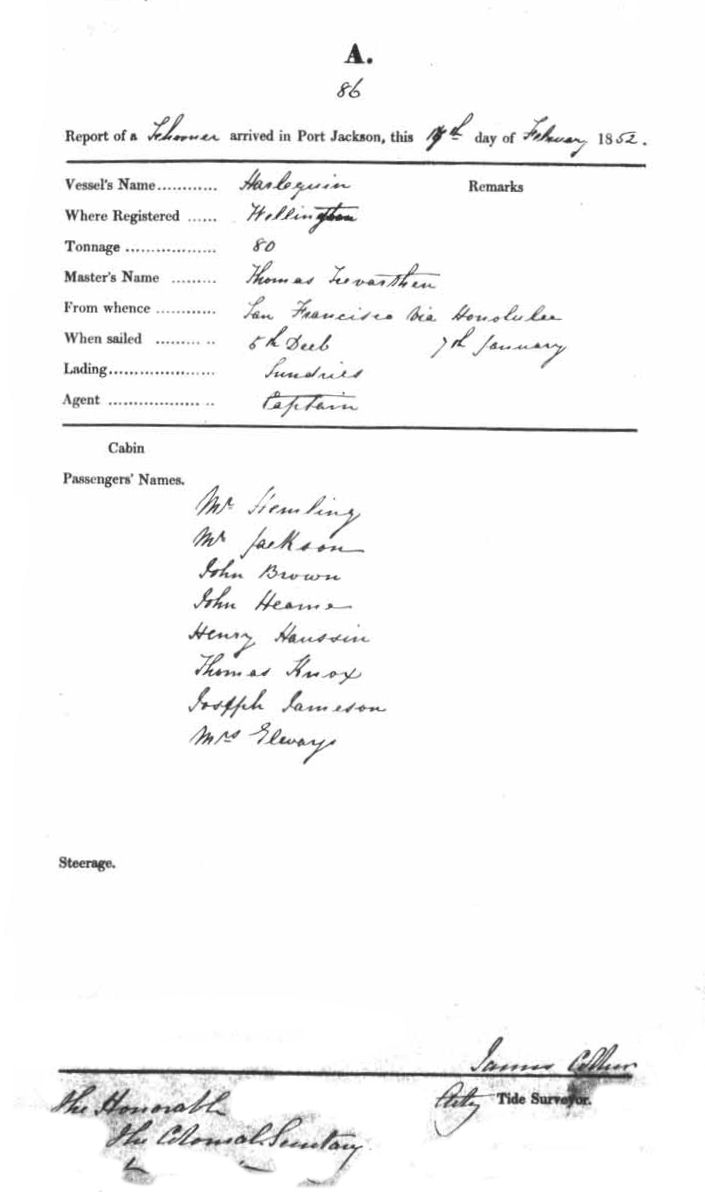 A.
86
Report of a Schooner arrived in Port Jackson, this day of February 1852.
Vessel's Name............ Harlequin Remarks
Where Registered ...... Wellington
Tonnage .................. 80
Master's Name ......... Thomas Trevarthen
From whence ............ San Francisco Via Honolulee
When sailed ......... .. 5th Decb 7th January
Lading..................... Sundries
Agent .................. .. Captain
Cabin
Passengers' Names.
Mr Hemling
Mr Jackson
John Brown
John Hearne
Henry Haussin
Thomas Knox
Joseph Jameson
Mrs Elways
Steerage.
James
Actg Tide Surveyor.
The Honorable
The Colonial Secretary